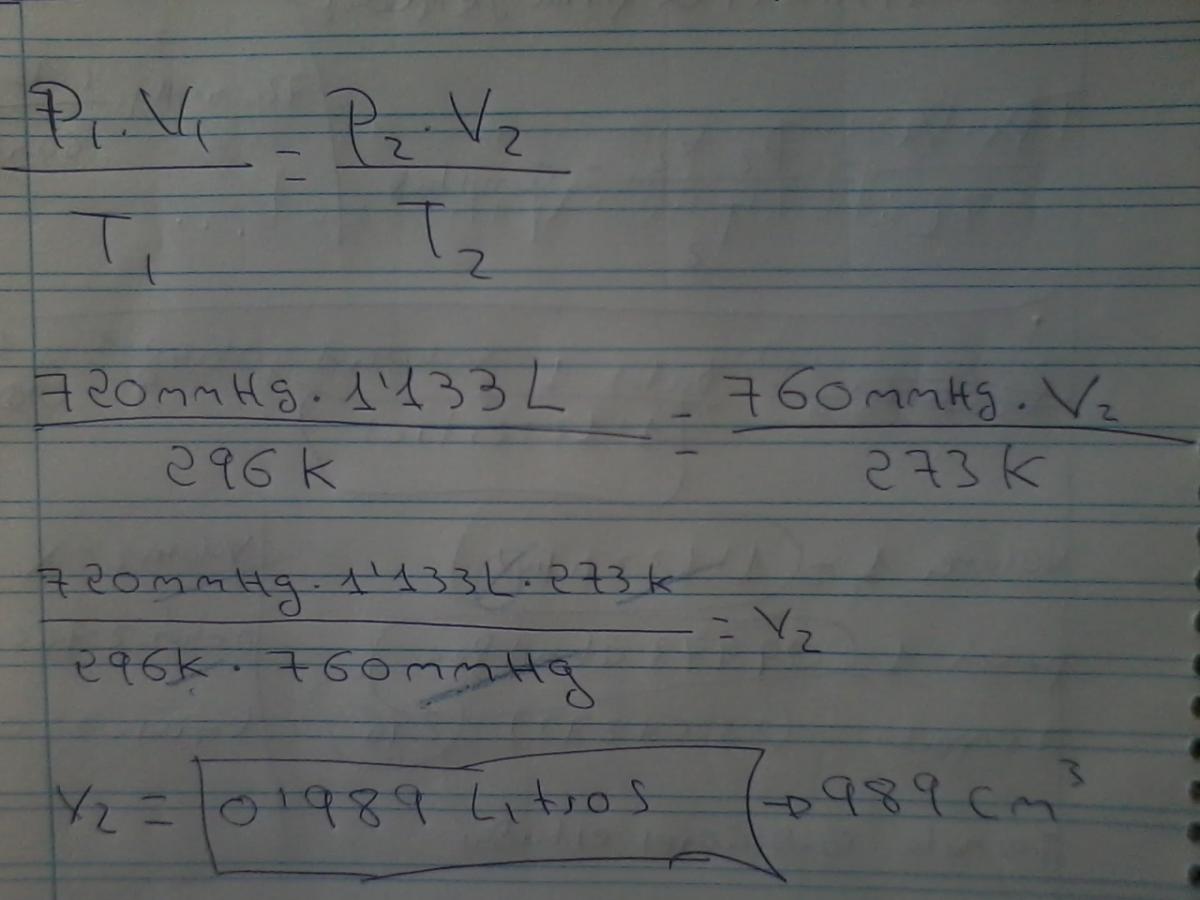 P₁.V₁ / T₁ = P₂.V₂ / T₂
720mmHg.1'133L / 296K = 760mmHg.V₂ / 273K
720mmHg.1'133L.273K / 296K.760mmHg = V₂
V₂ = 0'989 Litros → 989 cm³